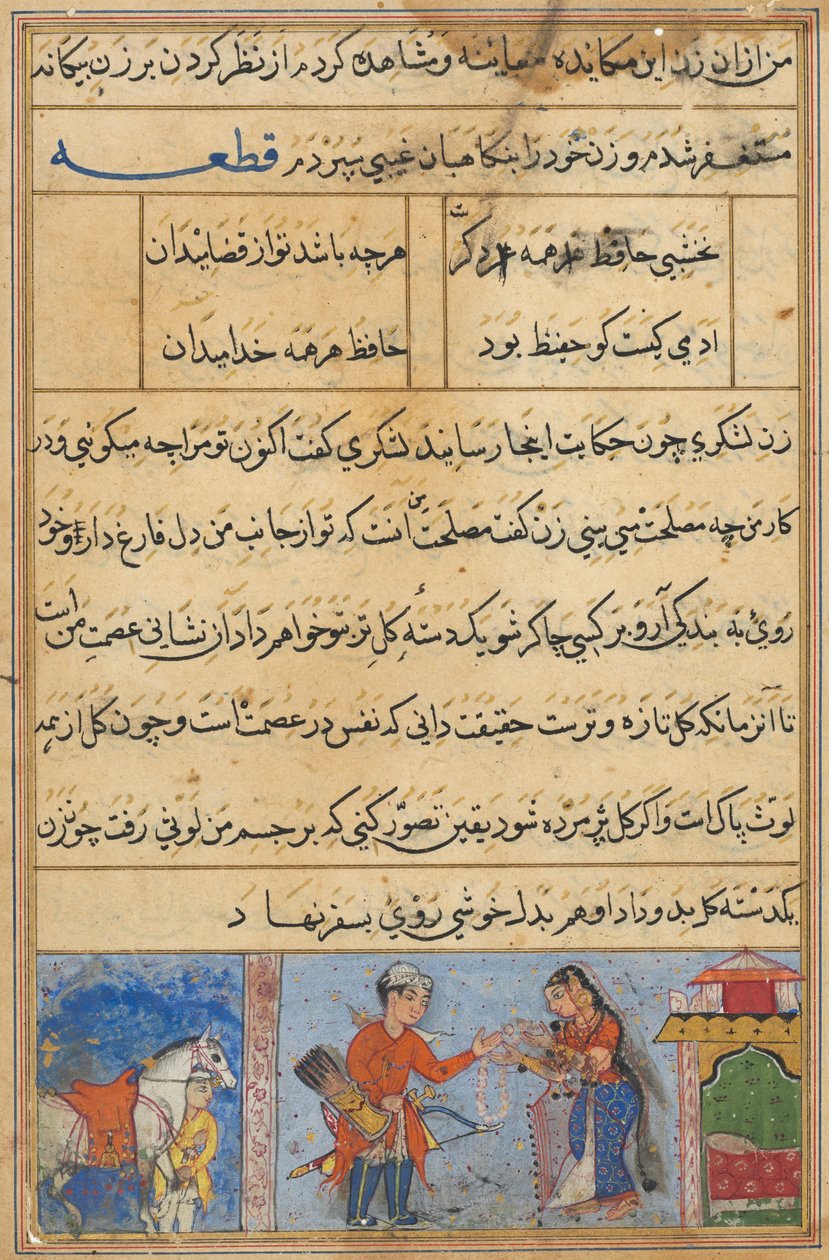 من ازان زن این مکایده معاینه و مشاهده کردم از نظر کردن بر زن بیکانه
مستغفر شدم و زن خود را بنکاهبان غیبی سپردم قطعه
نخشبی حافظ همه دکر هرچه باشد تو از قضا میدان
ادمی کیست کو حفیظ بود حافظ هر همه خدا میدان
زن لشکری چون حکایت اینجا رسانید لشکری کفت اکنون تو مرا چه میکوئی و در
کار من چه مصلحت می بینی زن کفت مصلحت من آنست که تو از جانب من دل فارغ دار و خود
روی به بندکی آر و بر کسی چاکر شو یکدسته کل تر بتو خواهم داد آن نشانی عصمت من است
تا آنزمانکه کل تازه و ترست حقیقت دانی که نفس در عصمت است و چون کل از همه
لوث پاک است و اکر کل پژمرده شود یقین تصور کنی که بر جسم من لوثی رفت چون زن
یکدسته کل بدو داد او هم بدل خوشی روی بسفر نهاد